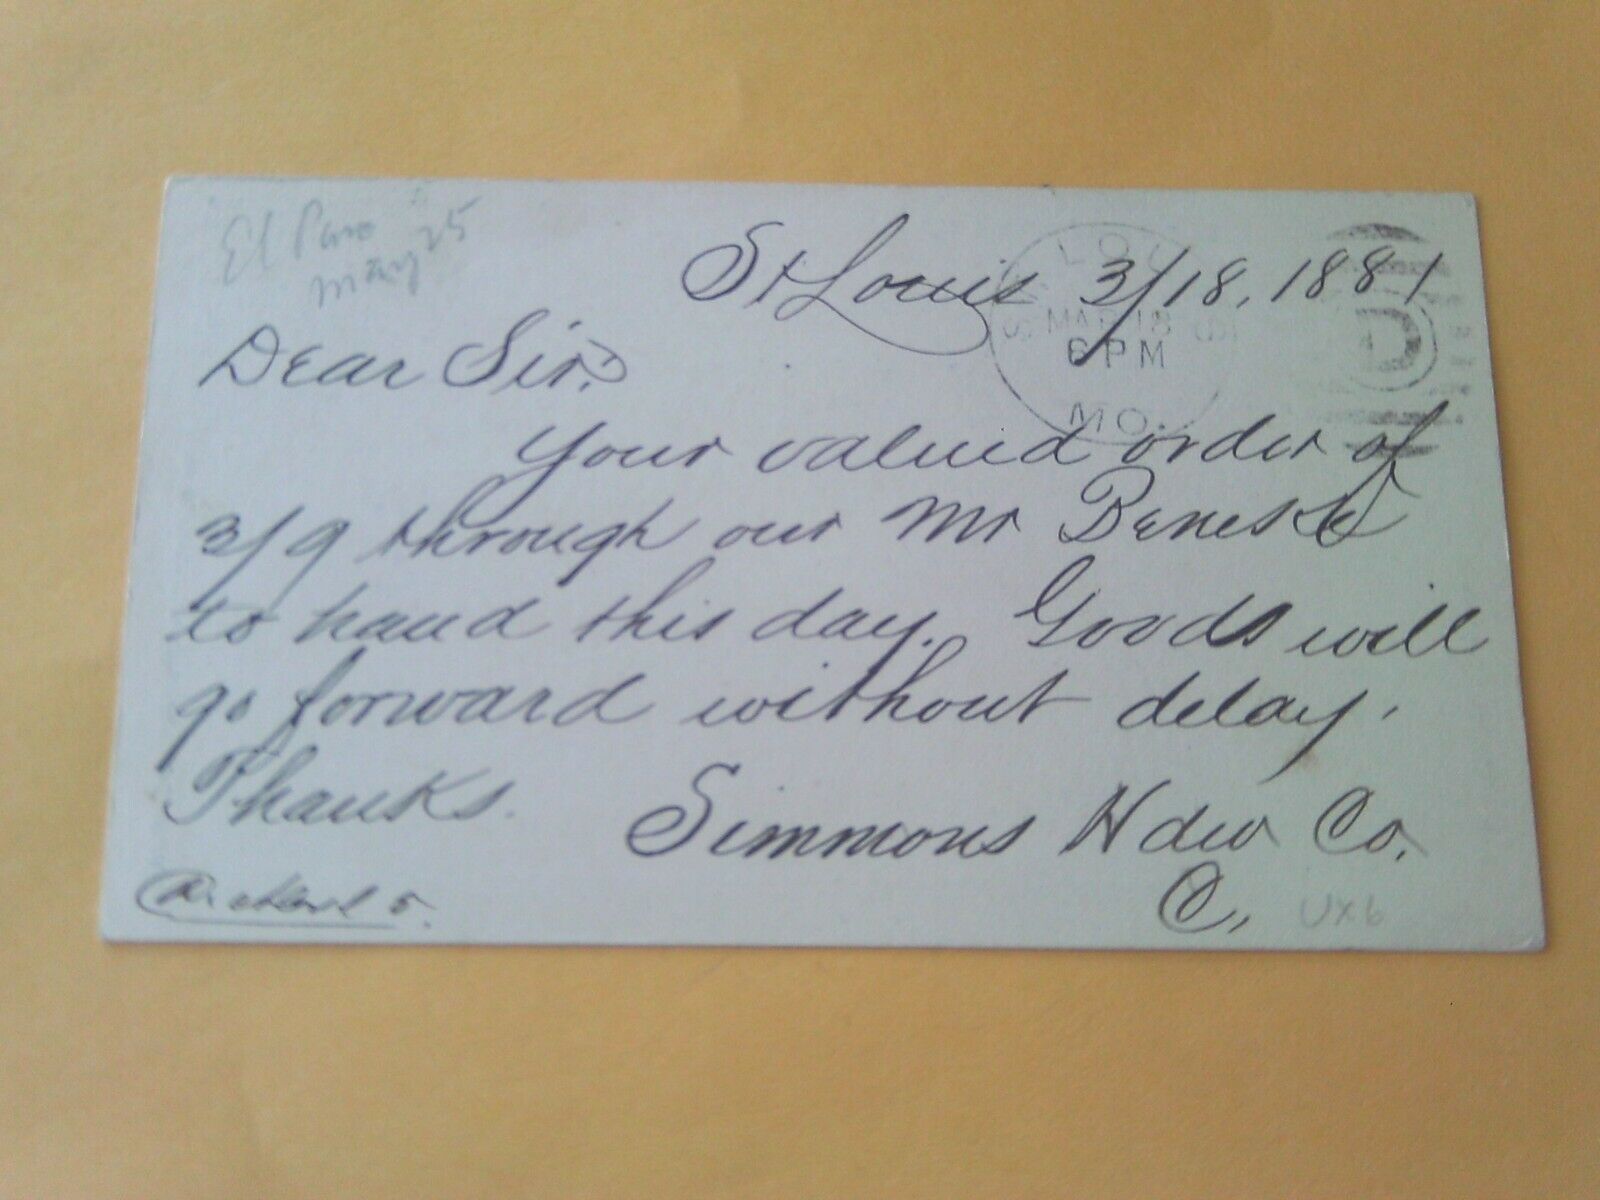 El Paso
May 25
St Louis 3/18, 1881
ST. LOUIS
MAR 18
6 PM
MO.
Dear Sir:
Your valued order of
3/9 through our Mr
to hand this day. Goods will
go forward without delay.
Thanks.
Simmons Hdw Co.
C.
UX6